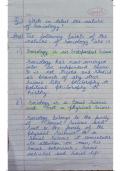 State in detail the nature
of Sociology?
The following points of the
nature of Sociology are :-
Sociology is an independent science
Sociology has now emerged
into an independent science
is not treated and studied
as branch of any other
science like philosophy or
political philosophy or
history.
Sociology is a Social Science
and not a physical science
Sociology belongs to the family
of
and not to the family of
the physical sciences. As a
Social Science it
its attention on man, his
Social behaviour, Social
activities and Social life